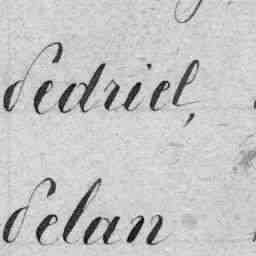 dedriel,
delan